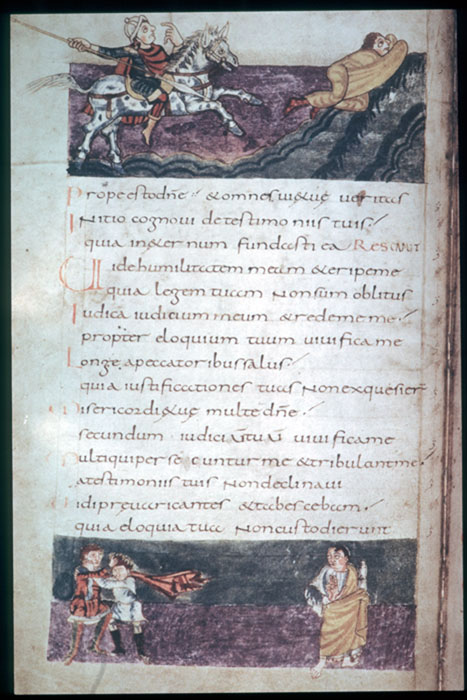 Prope esto dñe · & omnes uię tuę ueritas
INitio cognoui de testimoniis tuis
quia in &ernum fundasti ea RES
Uide humilitatem meam & eripe me
quia legem tuam Non sum oblitus
Iudica iudicium meum & redeme me
propter eloquium tuum uiuifica me
Longe a peccatoribus salus
quia iustificationes tuas Non exquesier
Misericordię tuę multe dñe
secundum iudiciū tuū uiuifica me
Multi qui persecuntur me & tribulant me
a testimoniis tuis Non declinaui
Uidi preuaricantes & tabescebam
quia eloquia tua Non custodierunt